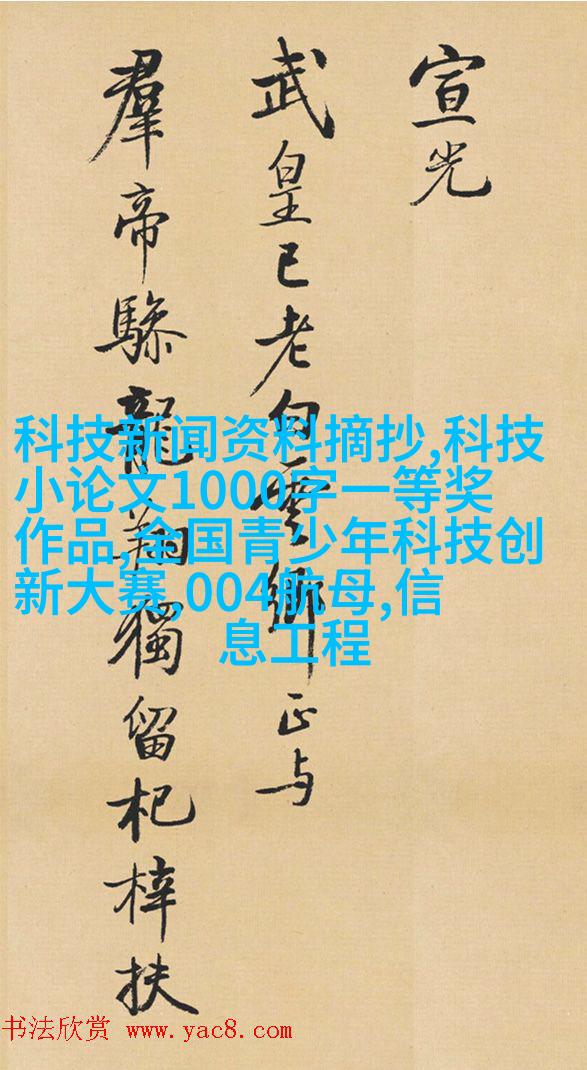 宣光
武皇已老白雲鄉正与
羣帝驂龍翔獨留杞梓扶
科技新闻资料摘抄,科技
小论文1000字一等奖
作品,全国青少年科技创
新大赛,004航母,信
息工程
书法欣赏 www.yac8.com